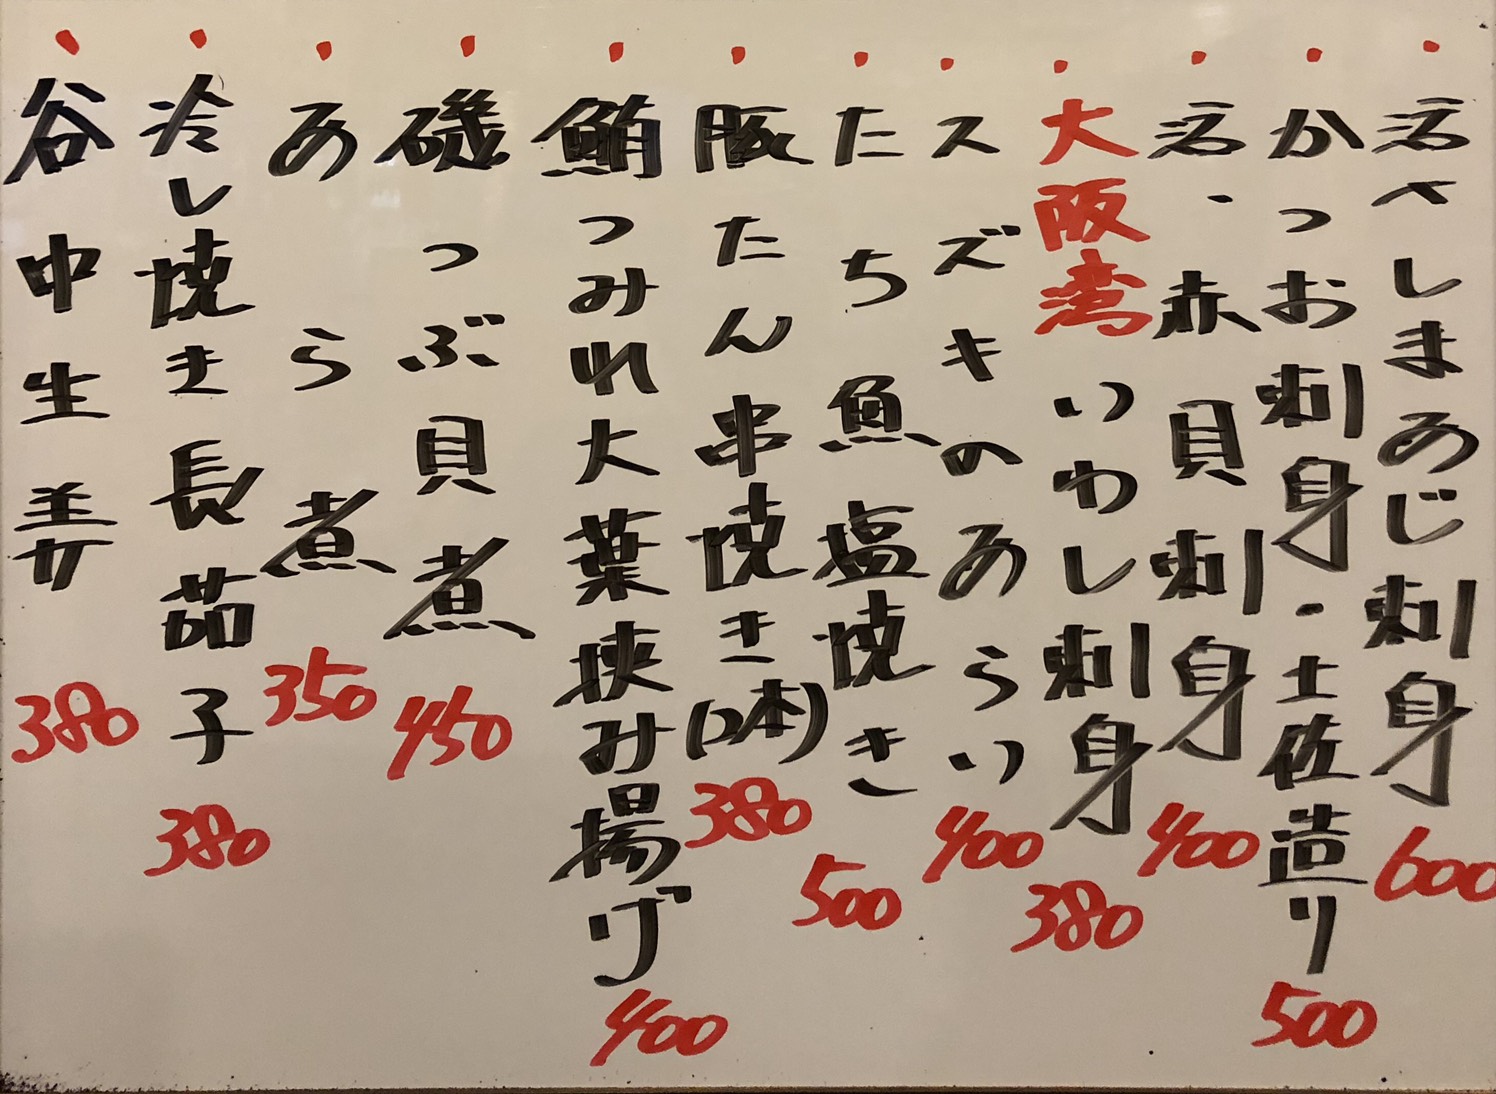 活〆しまあじ刺身 600
かつお刺身・土佐造り 500
活・赤貝刺身 400
大阪湾いわし刺身 380
スズキのあらい 400
たち魚塩焼き 500
豚たん串焼き(2本) 380
鮪つみれ大葉挟み揚げ 400
磯つぶ貝煮 450
あら煮 350
冷し焼き長茄子 380
谷中生姜 380